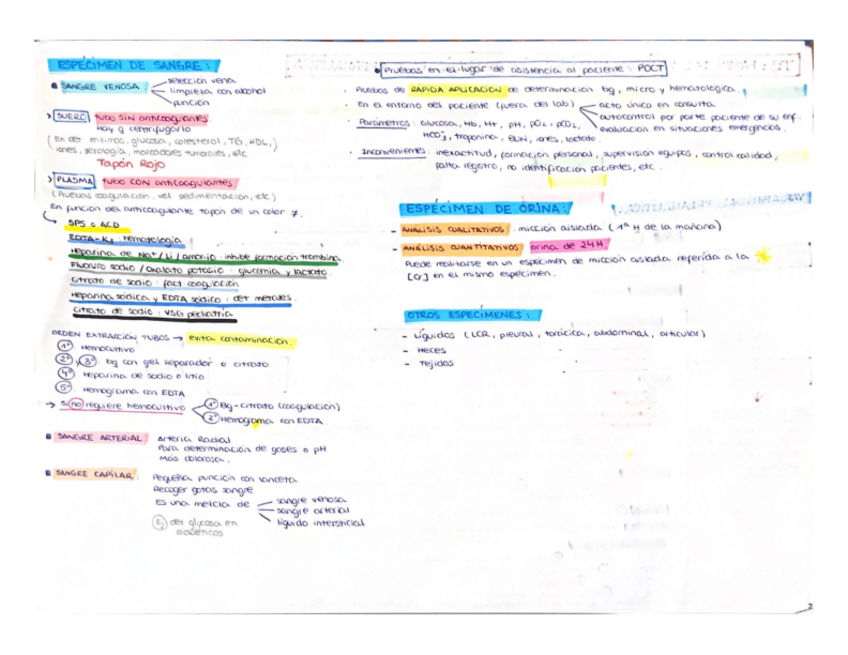 ESPÉCIMEN DE SANGRE:
SANGRE VENOSA: selección vena
limpieza con alcohol
punción
> SUERO tubo SIN anticoagulantes
Hay q centrifugarlo
(En det enzimas, glucosa, colesterol, TG, HDL,
iones, serología, marcadores tumorales, etc
Tapón Rojo
> PLASMA tubo CON anticoagulantes
(Pruebas coagulación, vel sedimentación, etc)
En función del anticoagulante tapón de un color ≠.
SPS o ACD
EDTA-K3: hematología
Heparina de Na+/Li/amonio: inhibe formación trombina
Fluoruro sodio/Oxalato potasio: glucemia y lactato.
Citrato de sodio: fact coagulación
Heparina sódica y EDTA sódico: det metales.
Citrato de sodio: VSG pediatría
ORDEN EXTRACCIÓN TUBOS → evita contaminación.
1º Hemocultivo
2º y 3º bq con gel separador o citrato
4º Heparina de sodio o litio
5º Hemograma con EDTA
→ Si no requiere hemocultivo 1º Bq-citrato (coagulación)
2º Hemograma con EDTA
SANGRE ARTERIAL: Arteria Radial
Para determinación de gases o pH
Más dolorosa.
SANGRE CAPILAR: Pequeña punción con lanceta
Recoger gotas sangre
Es una mezcla de sangre venosa
sangre arterial
líquido intersticial
Ej det glucosa en
diabéticos
Pruebas en el lugar de asistencia al paciente: POCT
· Pruebas de RÁPIDA APLICACIÓN de determinación bq, micro y hematológica.
· En el entorno del paciente (fuera del lab) acto único en consulta.
autocontrol por parte paciente de su enf.
evaluación en situaciones emergencias.
· Parámetros: Glucosa, Hb, Ht, pH, pO2, pCO2,
HCO3-, troponina, BUN, iones, lactato.
· Inconvenientes: inexactitud, formación personal, supervisión equipos, control calidad,
falta registro, no identificación pacientes, etc.
ESPÉCIMEN DE ORINA:
- ANÁLISIS CUALITATIVOS: micción aislada (1ª H de la mañana)
- ANÁLISIS CUANTITATIVOS orina de 24H
Puede realizarse en un espécimen de micción aislada referida a la
[Cr] en el mismo espécimen.
OTROS ESPECÍMENES:
- Líquidos (LCR, pleural, torácica, abdominal, articular)
- Heces
- Tejidos
2